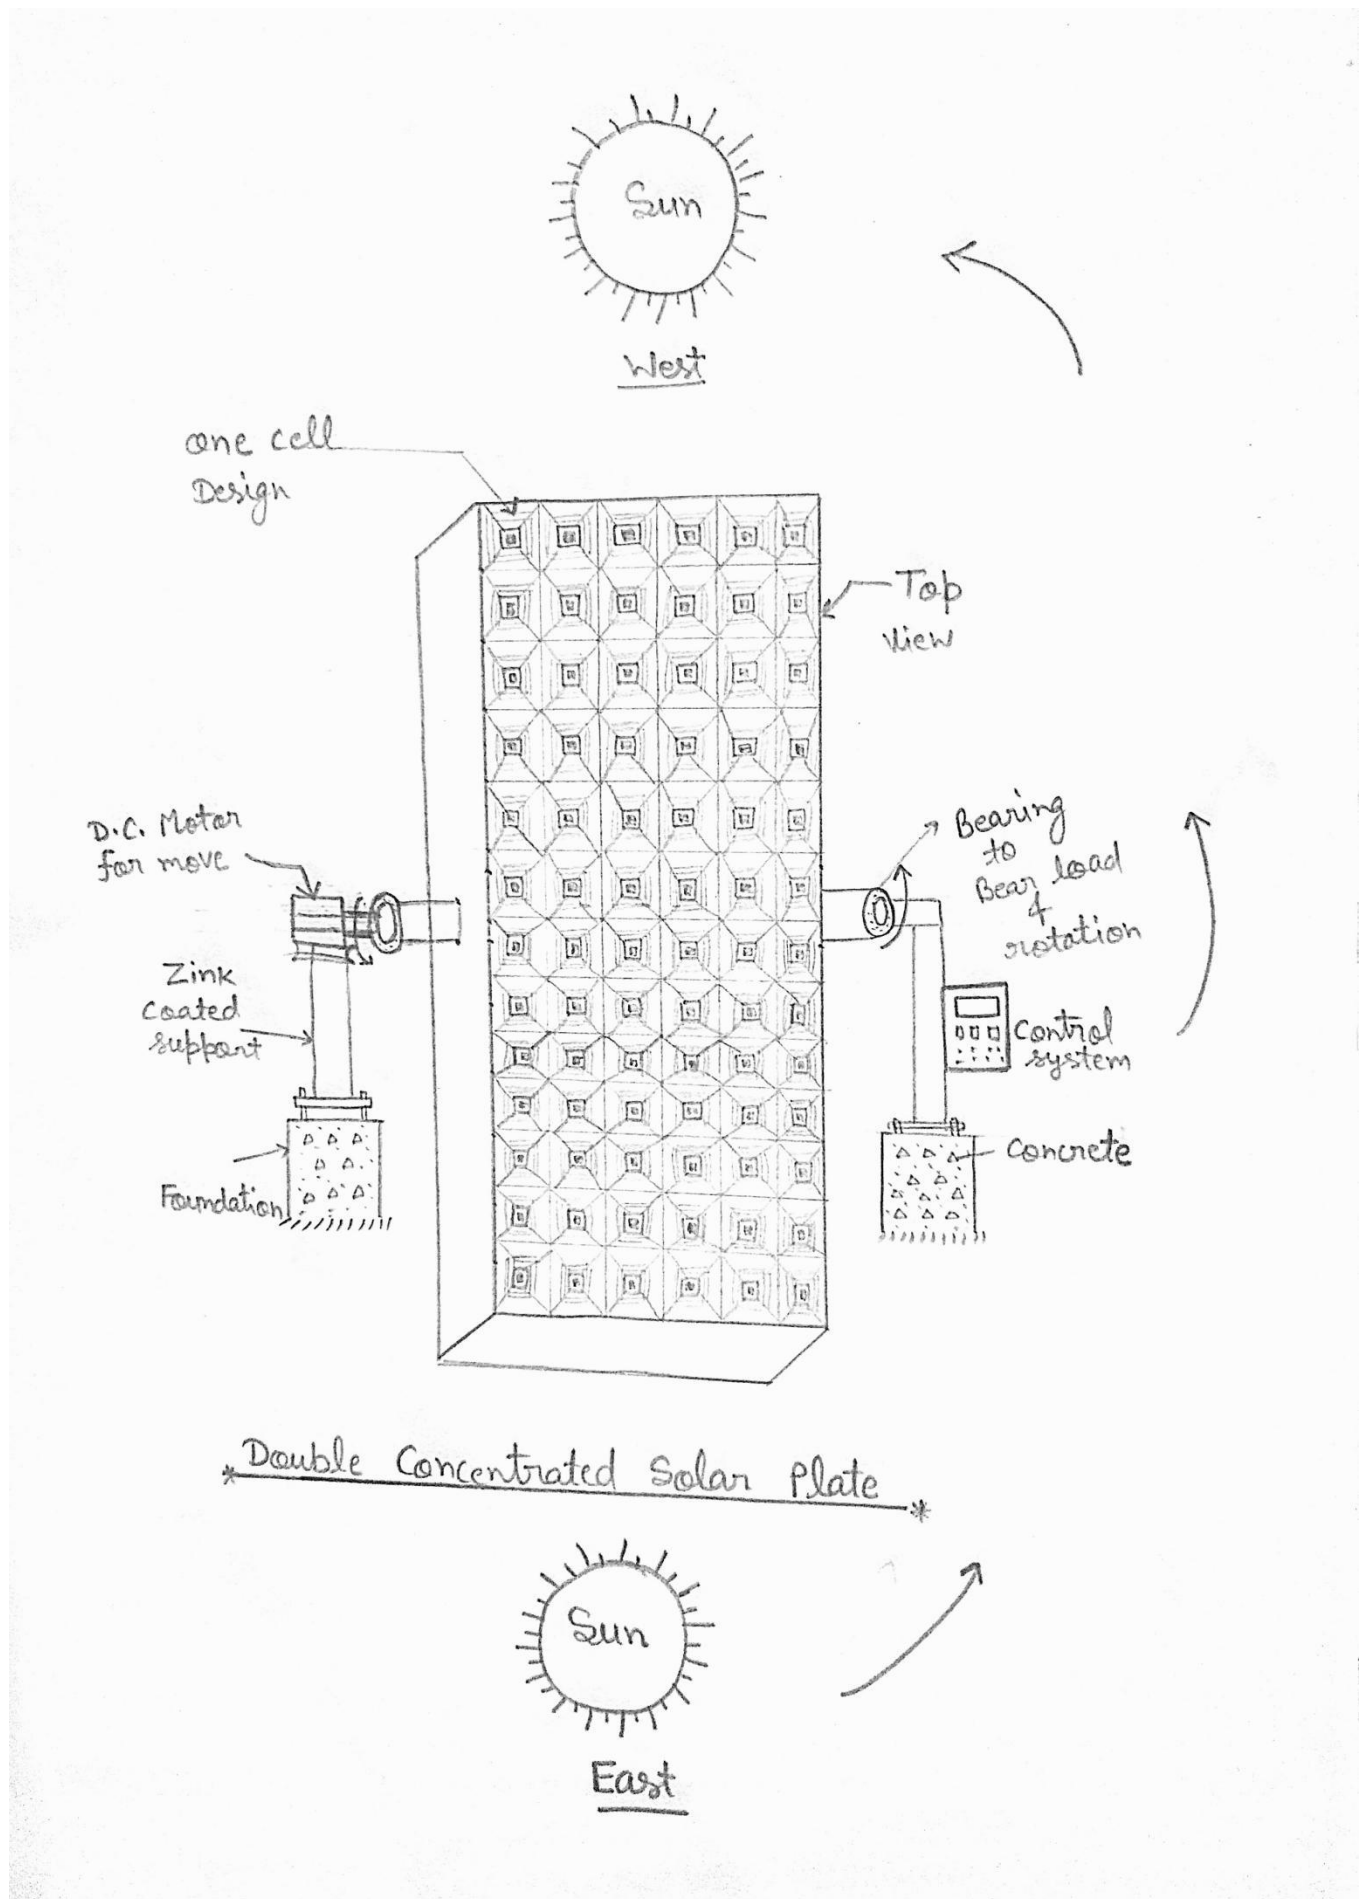 Sun
West
one cell
Design
Top
View
D.C. Motor
for move
Bearing
to
Bear load
&
rotation
Zink
Coated
support
Control
system
Foundation
Concrete
* Double Concentrated Solar Plate *
Sun
East